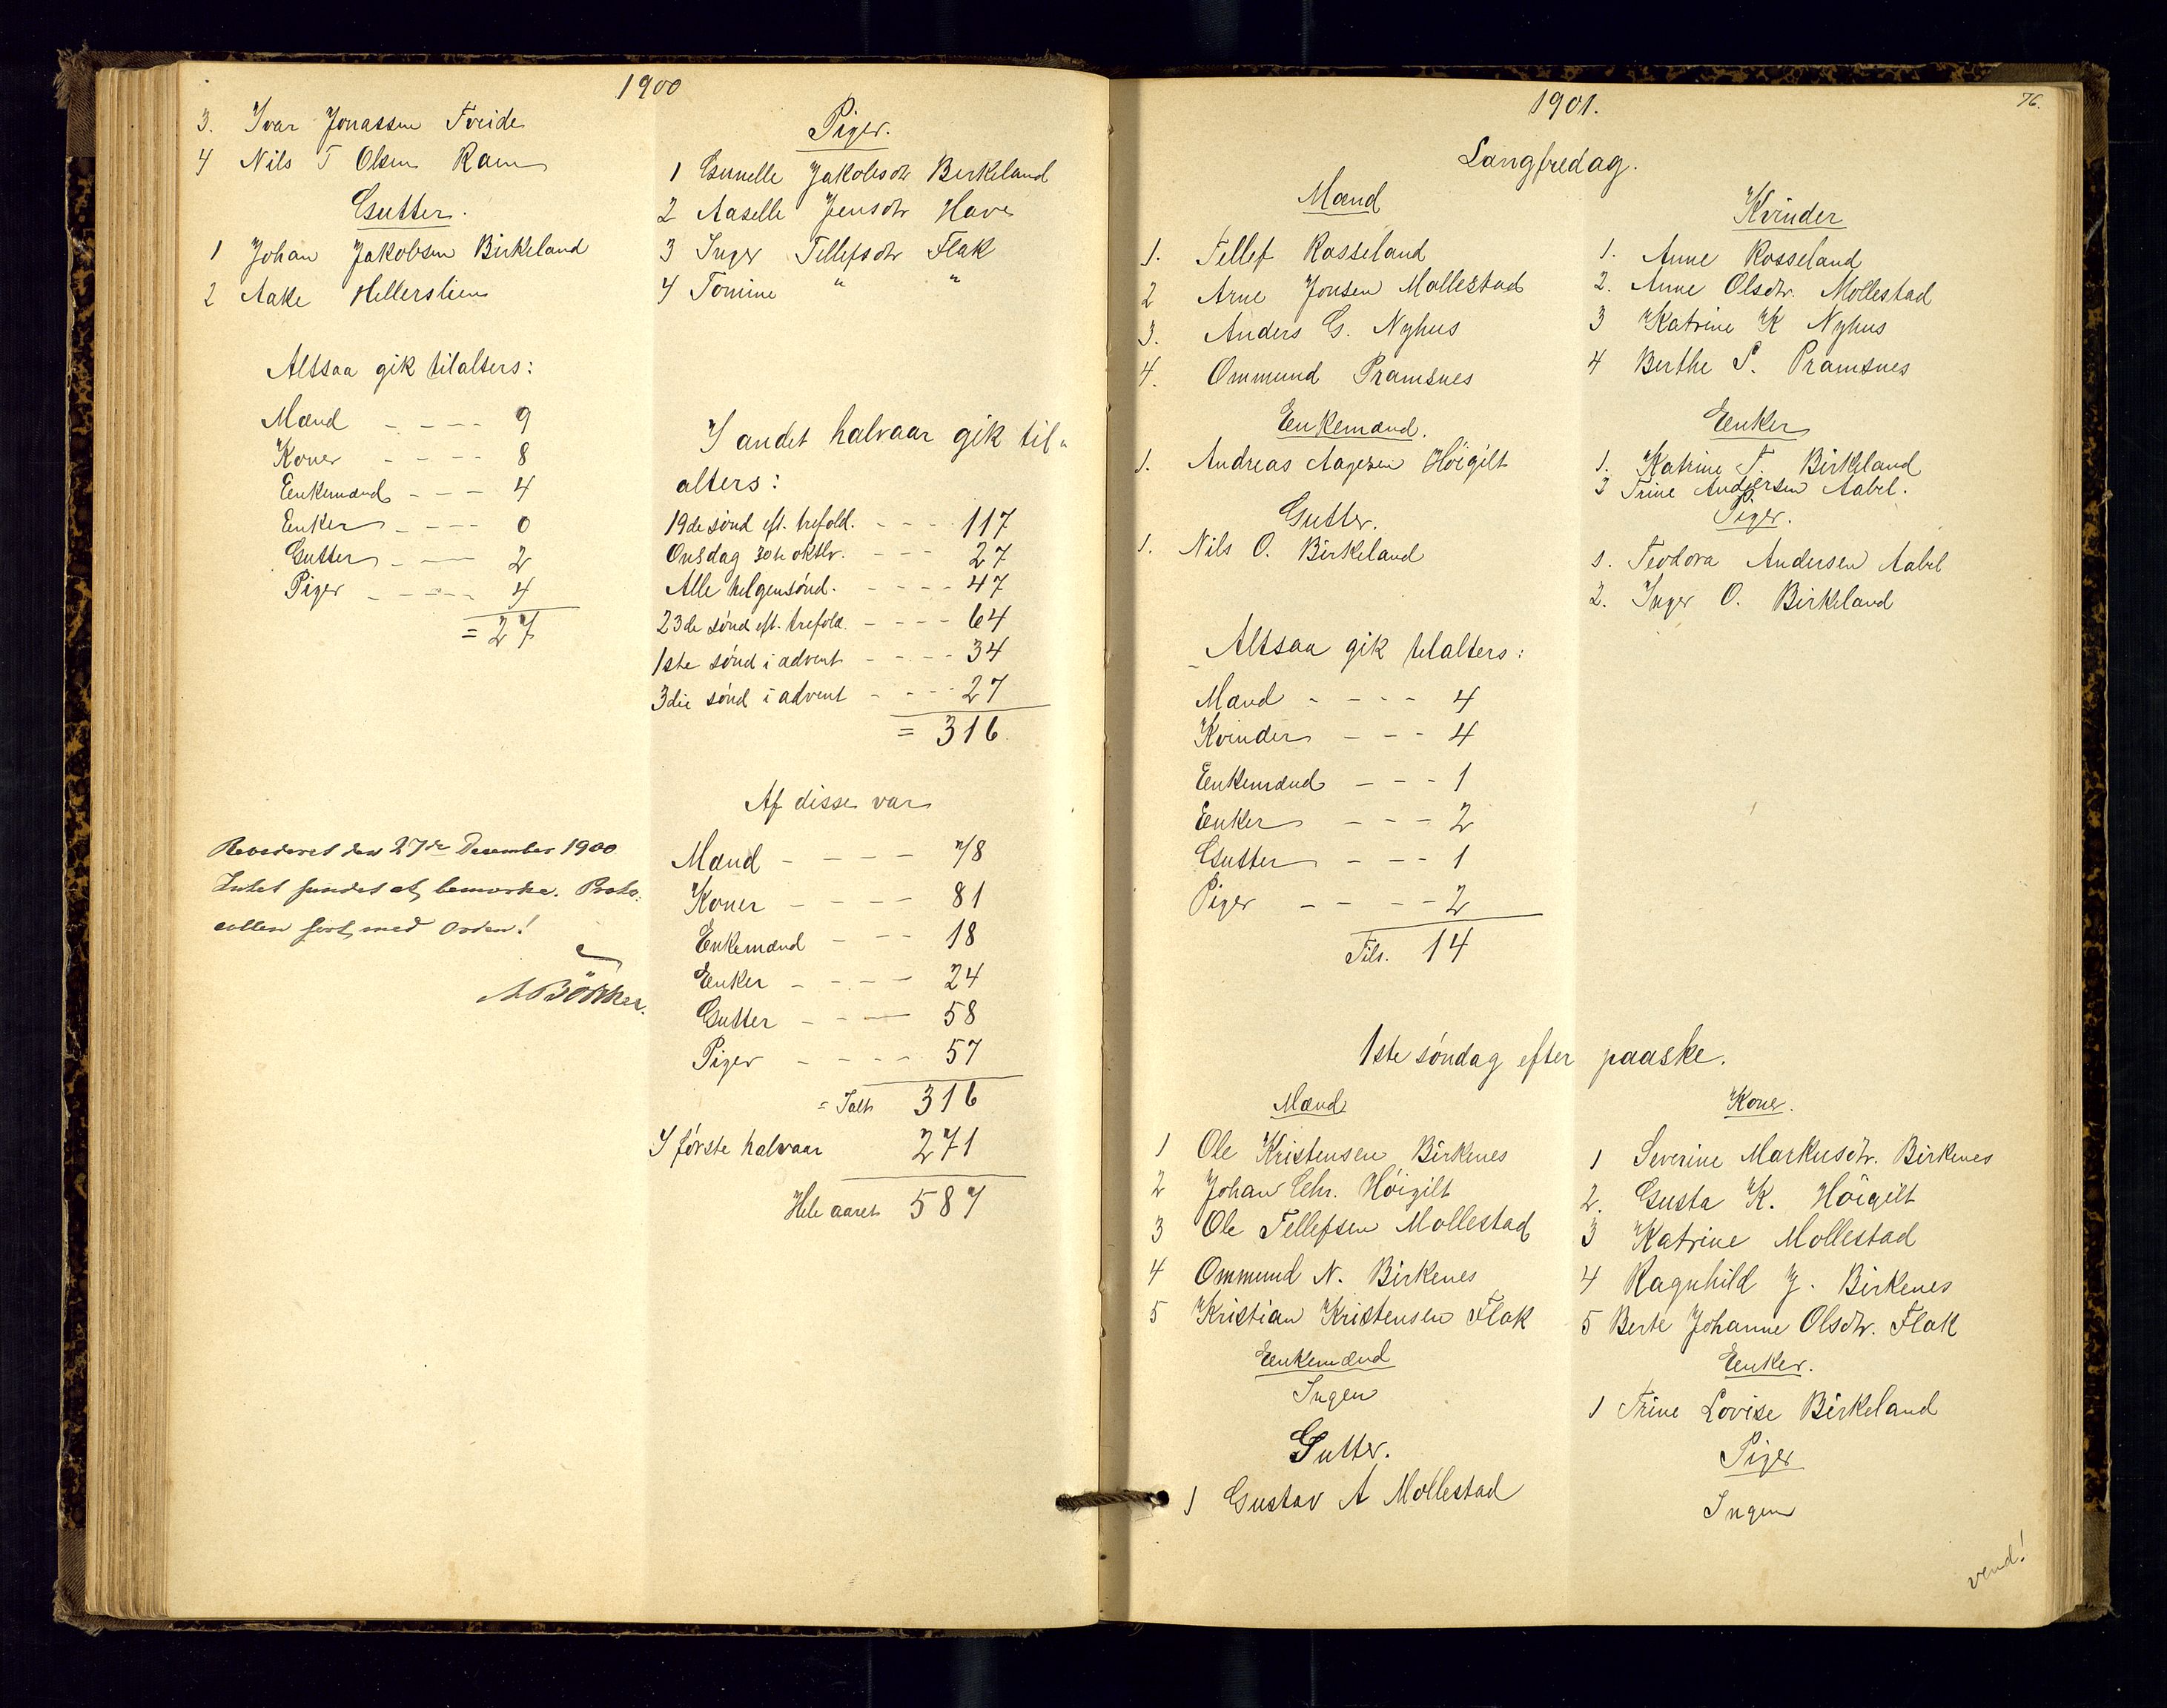 1900
3. Ivar Jonassen Tveide
4 Nils T Olsen Ramse
Gutter.
1 Johan Jakobsen Birkeland
2 Aake Hellerslien
Altsaa gik tilalters:
Mænd - - - - 9
Koner - - - - 8
Enkemænd - - - 4
Enker - - - - 0
Gutter - - - 2
Piger - - - - 4
= 27
Revideret den 27de Desember 1900
Intet fundet at bemærke. Proto-
collen ført med Orden!
Piger.
1 Gunelle Jakobsdtr Birkeland
2 Aaselle Jensdtr Have
3 Inger Tellefsdtr Flak
4 Tomine " "
I andet halvaar gik til-
alters:
19de sønd eft. trefold. - - - 117
Onsdag 30te oktbr. - - - 27
Alle helgensønd. - - - - 47
23de sønd eft. trefold. - - - - 64
1ste sønd i advent - - - - 34
3die sønd i advent - - - - 27
= 316.
Af disse var
Mænd - - - - 78
Koner - - - - 81
Enkemænd - - - 18
Enker - - - - 24
Gutter - - - 58
Piger - - - - 57
= Ialt 316
I første halvaar 271
Hele aaret 587
76.
1901.
Langfredag.
Mænd
1. Tellef Rosseland
2 Arne Jonsen Mollestad
3. Anders G. Nyhus
4. Ommund Pramsnes
Enkemænd.
1. Andreas Aagesen Høigilt
Gutter.
1. Nils O. Birkeland
Kvinder
1. Anne Rosseland
2. Anne Olsdtr. Mollestad
3 Katrine K Nyhus
4 Berthe S. Pramsnes
Enker
1. Katrine T. Birkeland
2 Trine Andersen Aabel.
Piger.
1. Teodora Andersen Aabel
2. Inger O. Birkeland
Altsaa gik tilalters:
Mænd - - - - 4
Kvinder - - - 4
Enkemænd - - - 1
Enker - - - 2
Gutter - - - 1
Piger - - - - 2
Tils. 14
1ste søndag efter paaske.
Mænd
1 Ole Kristensen Birkenes
2 Johan Chr. Høigilt
3 Ole Tellefsen Mollestad
4 Ommund N. Birkenes
5 Kristian Kristensen Flak
Enkemænd
Ingen
Gutter.
1 Gustav A Mollestad
Koner.
1 Severine Markusdtr. Birkenes
2. Gusta K. Høigilt
3 Katrine Mollestad
4 Ragnhild J. Birkenes
5 Berte Johanne Olsdtr. Flak
Enker.
1 Trine Lovise Birkeland
Piger
Ingen
vend!